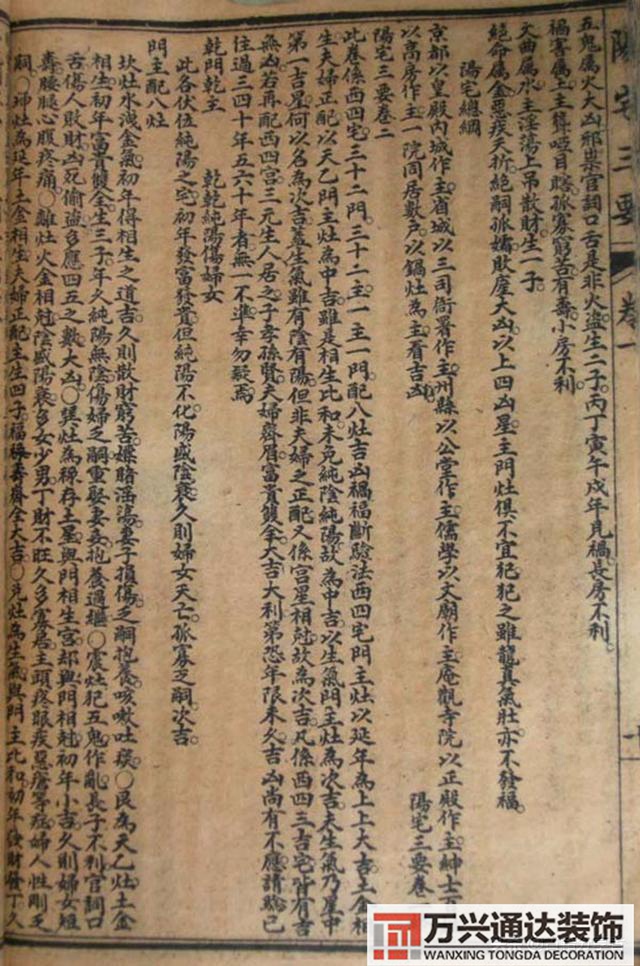 陽宅三要 卷一
五鬼屬火大凶邪祟官詞口舌是非火盜生二子丙丁寅午戌年見禍長房不利
禍害屬土主聾啞目瞎孤寡窮苦有壽小房不利
文曲屬水主淫蕩上吊散財生一子
絕命屬金惡疾夭折絕嗣孤孀敗產大凶以上四凶星主門灶俱不宜犯犯之雖龍真氣壯亦不發福
陽宅總綱
京都以皇殿內城作主省城以三司衙署作主州縣以公堂作主儒學以文廟作主庵觀寺院以正殿作主紳士
以高房作主一院同居數戶以鍋灶為主看吉凶
陽宅三要卷
陽宅三要卷二
此卷係西四宅三十二門三十二主一主一門配八灶吉凶禍福斷驗法西四宅門主灶以延年為上上大吉土金相
生夫婦正配以天乙門主灶為中吉雖是相生比和未免純陰純陽故為中吉以生氣門主灶為次吉夫生氣乃星中
第一吉星何以名為次吉蓋生氣雖有陰有陽但非夫婦之正配又係宮星相尅故為次吉凡係西四三吉宅皆有吉
無凶若再配西四宮三元生人居之子孝孫賢夫婦齊眉富貴雙全大吉大利第恐年限未久吉凶尚有不應請驗已
往過三四十年五六十年者無一不準幸勿疑焉
乾門乾主 乾乾純陽傷婦女
此各伏位純陽之宅初年發富發貴但純陽不化陽盛陰衰久則婦女夭亡孤寡乏嗣次吉
門主配八灶
坎灶水洩金氣初年得相生之道吉久則散財窮苦嫖賭淫蕩妻子損傷乏嗣抱養咳嗽吐痰○艮為天乙灶土金
相生初年富貴雙全生三子年久純陽無陰傷婦乏嗣重娶妻妾抱養過繼○震灶犯五鬼作亂長子不利官詞口
舌傷人敗財凶死偷盜多應四五之數大凶○巽灶為祿存土星與門相生宮卻與門相尅初年小吉久則婦女短
壽腰腿心腹疼痛○離灶火金相尅陰盛陽衰多女少男丁財不旺久多寡居主頭疼眼疾惡瘡等症婦人性剛乏
嗣○坤灶為延年土金相生夫婦正配主生四子福祿壽齊全大吉○兌灶為生氣與門主比和初年發財發丁久
万兴通达装饰
WANXING TONGDA DECORATION